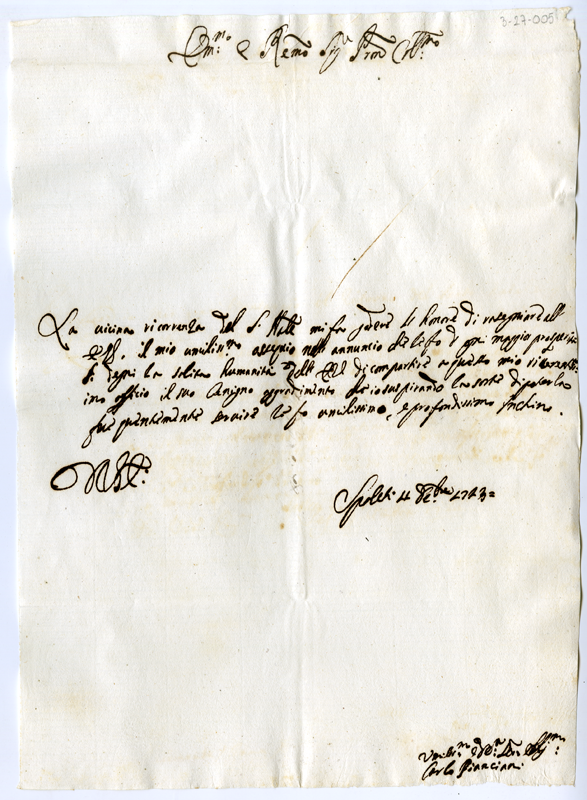 3-27-005
Em.mo e Rev.mo Sig.r P.ron Col.mo
La vicina ricorrenza del S. Natale mi fa godere l'honore di rassegnare all'
E.V. il mio umilissimo ossequio nell'annuncio che le fo d'ogni maggior prosperità
Si degni la solita humanità dell'E.V. di compartire a questo mio riverentis
imo officio il suo benigno aggradimento che io sospirando la sorte di poterla
frequentemente servire le fo umilissimo, e profondissimo inchino.
Di V.E.
Spoleti 11 Xbre 1743
Umil.mo Dev.mo Ser.
Carlo Pianciani